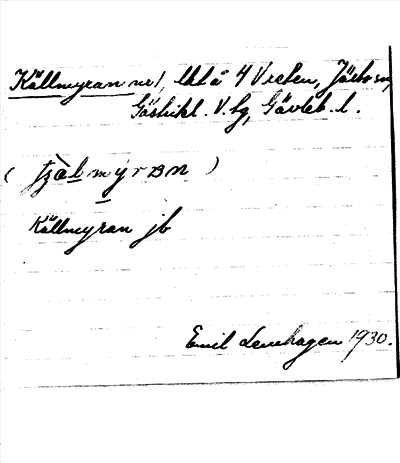 Källmyran nr 1, lht å 4 Vreten, Järbo sn,
Gästrikl. V. tg, Gävleb. l.
(tjälmyran)
Källmyran jb
Emil Lenhagen 1930.